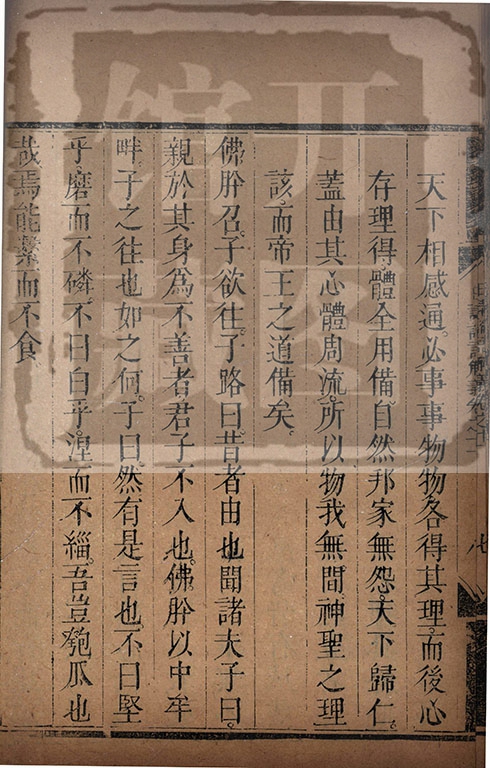 天下相感通必事事物物各得其理而後心
存理得體全用備自然邦家無怨天下歸仁
蓋由其心體周流所以物我無間神聖之理
該而帝王之道備矣
佛肸召子欲往子路曰昔者由也聞諸夫子曰
親於其身爲不善者君子不入也佛肸以中牟
畔子之往也如之何子曰然有是言也不曰堅
乎磨而不磷不曰白乎涅而不緇吾豈匏瓜也
哉焉能繫而不食